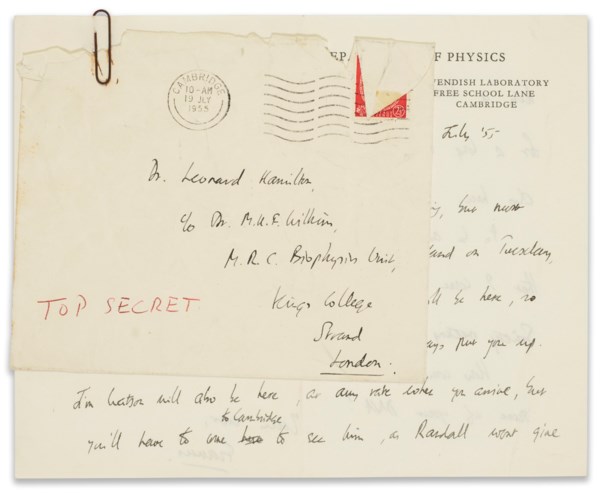 EPA OF PHYSICS
VENDISH LABORATORY
FREE SCHOOL LANE
CAMBRIDGE
CAMBRIDGE
10-AM
19 JLY
1955
July '55
Dr. Leonard Hamilton,
c/o Dr. M.H.F. Wilkins,
M.R.C. Biophysics Unit,
Kings College
Strand
London.
TOP SECRET
, but must
land on Tuesday,
ll be here, so
ays put you up.
Jim Watson will also be here, at any rate when you arrive, but
to Cambridge
you'll have to come to see him, as Randall wont give